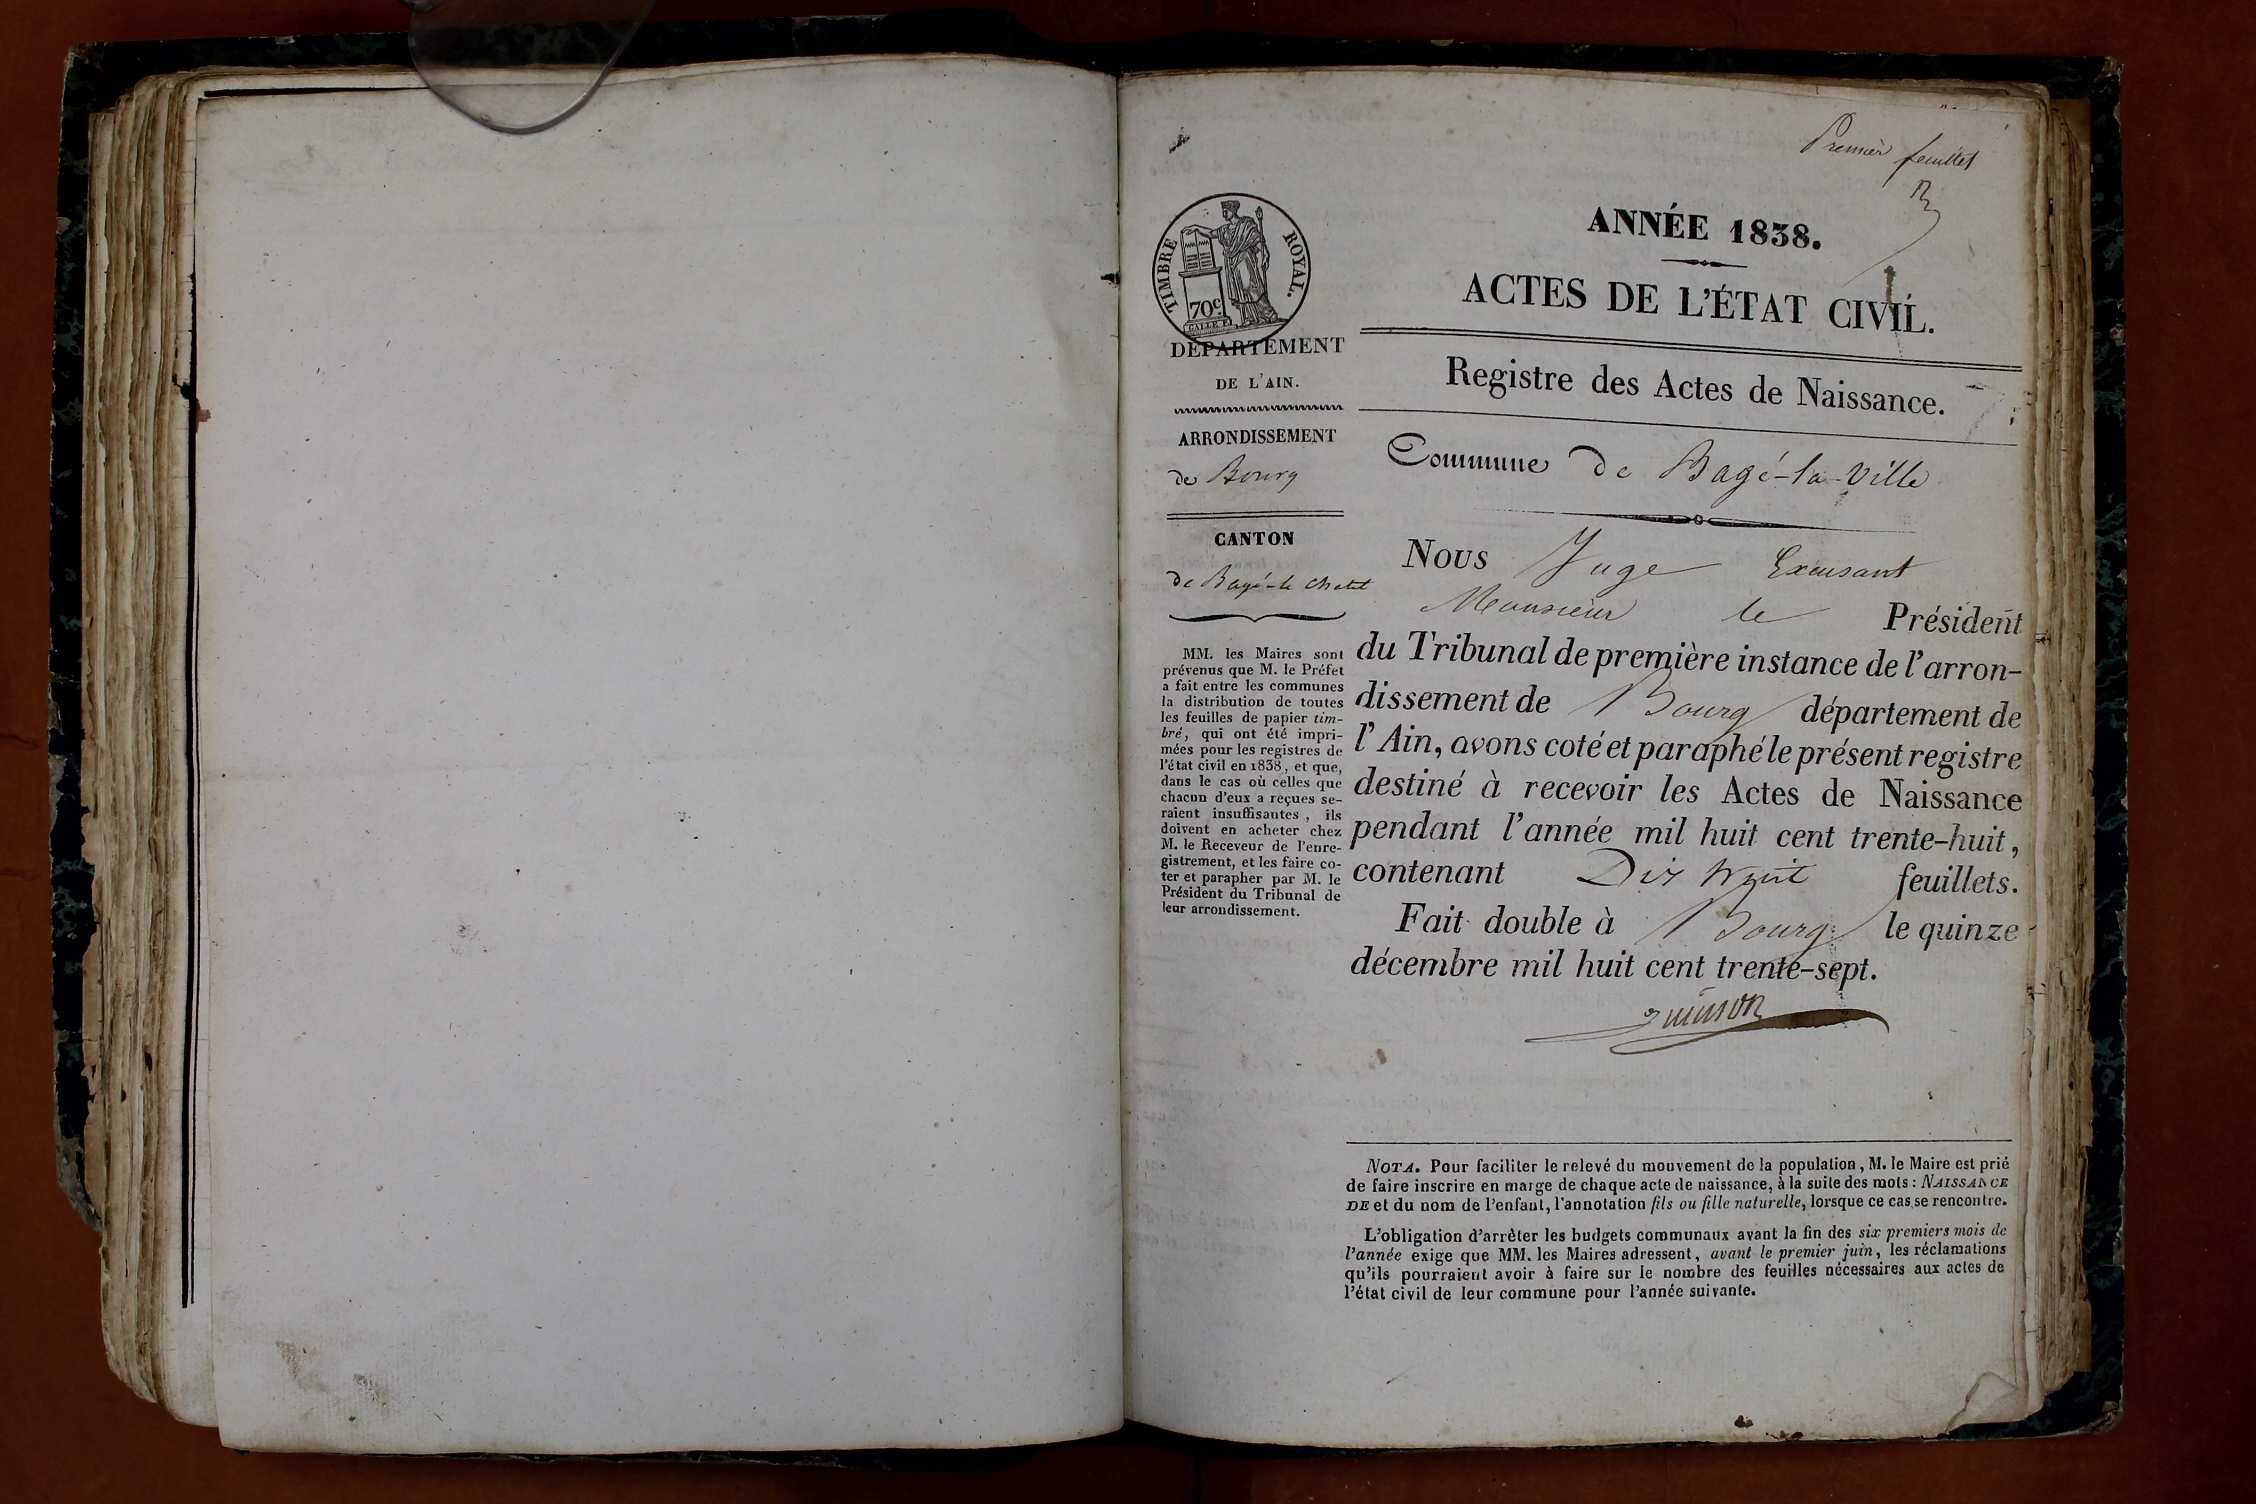 Premier feuillet
ANNÉE 1838.
ACTES DE L'ÉTAT CIVIL.
Registre des Actes de Naissance.
Commune de Bagé-la-Ville
TIMBRE ROYAL.
70c
DÉPARTEMENT
DE L'AIN.
ARRONDISSEMENT
de Bourg
CANTON
de Bagé-le Chatel
MM. les Maires sont
prévenus que M. le Préfet
a fait entre les communes
la distribution de toutes
les feuilles de papier tim-
bré, qui ont été impri-
mées pour les registres de
l'état civil en 1838, et que,
dans le cas où celles que
chacun d'eux a reçues se-
raient insuffisantes, ils
doivent en acheter chez
M. le Receveur de l'enre-
gistrement, et les faire co-
ter et parapher par M. le
Président du Tribunal de
leur arrondissement.
Nous Juge Excusant
Monsieur le Président
du Tribunal de première instance de l'arron-
dissement de Bourg département de
l'Ain, avons coté et paraphé le présent registre
destiné à recevoir les Actes de Naissance
pendant l'année mil huit cent trente-huit,
contenant Dix huit feuillets.
Fait double à Bourg le quinze
décembre mil huit cent trente-sept.
NOTA. Pour faciliter le relevé du mouvement de la population, M. le Maire est prié
de faire inscrire en marge de chaque acte de naissance, à la suite des mots : NAISSANCE
DE et du nom de l'enfant, l'annotation fils ou fille naturelle, lorsque ce cas se rencontre.
L'obligation d'arrêter les budgets communaux avant la fin des six premiers mois de
l'année exige que MM. les Maires adressent, avant le premier juin, les réclamations
qu'ils pourraient avoir à faire sur le nombre des feuilles nécessaires aux actes de
l'état civil de leur commune pour l'année suivante.